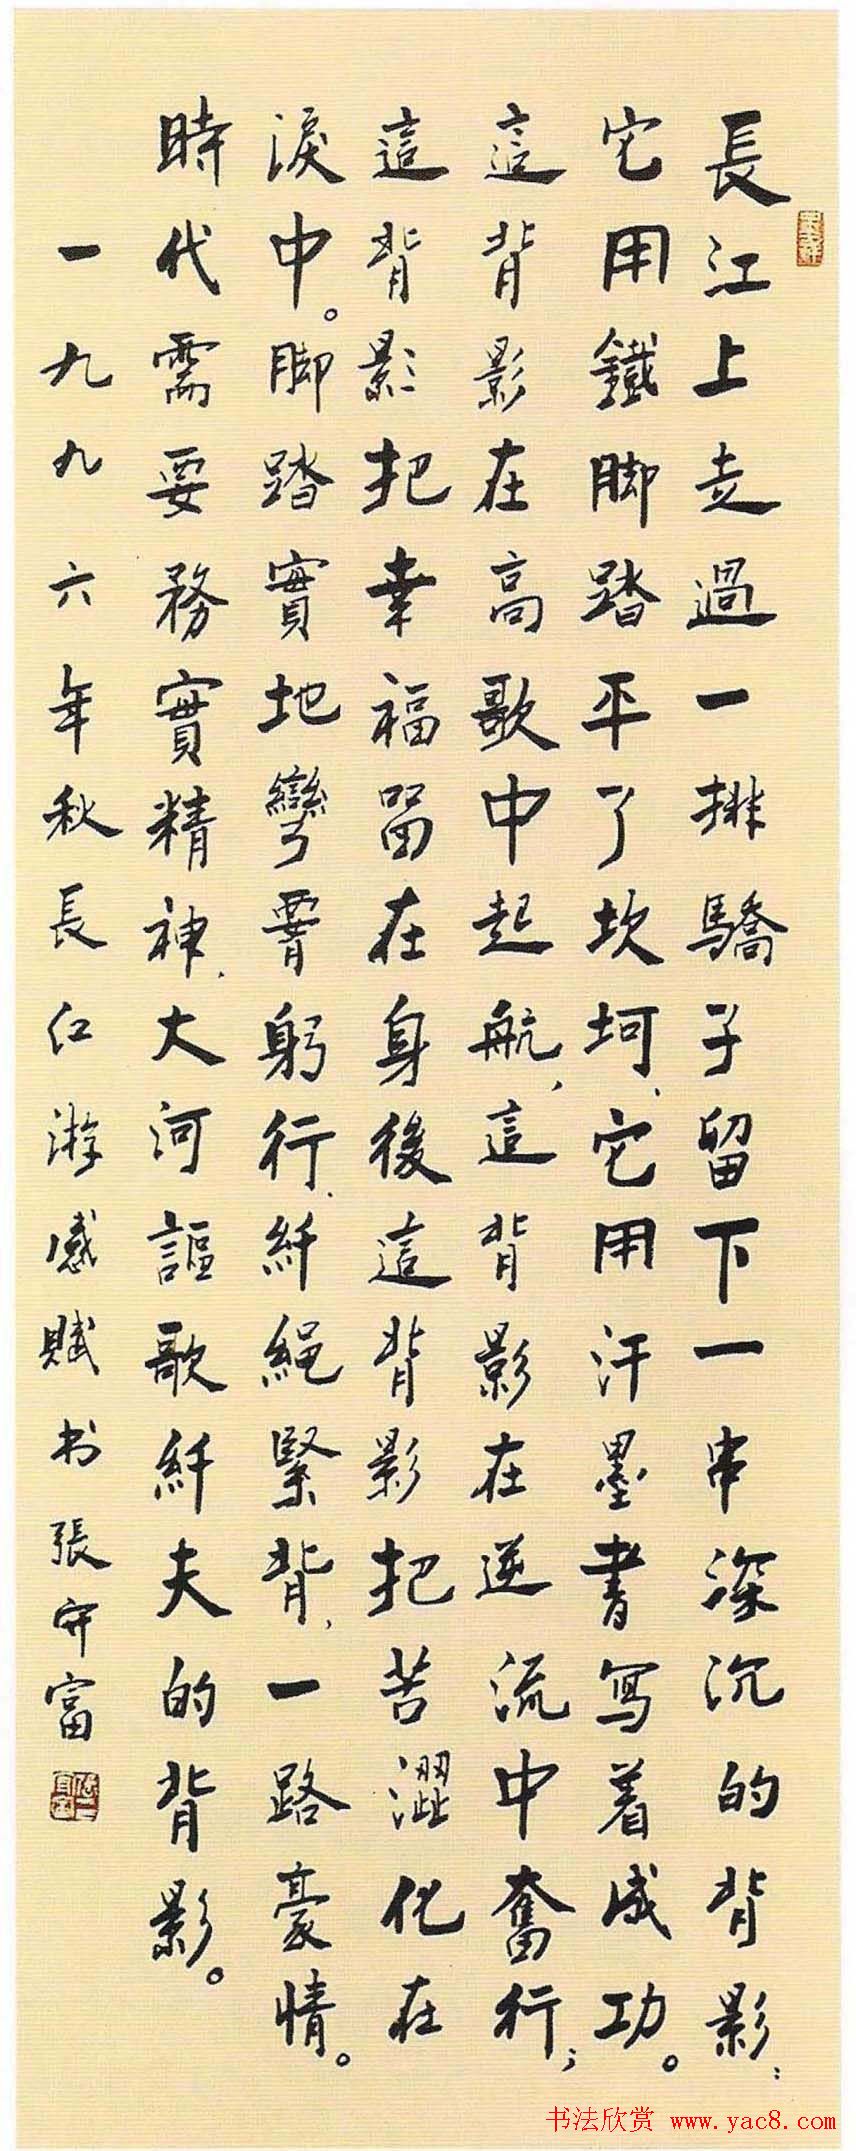 長江上走過一排驕子留下一串深沉的背影：
它用鐵脚踏平了坎坷、它用汗墨書寫着成功。
這背影在高歌中起航，這背影在逆流中奮行；
這背影把幸福留在身後這背影把苦澀化在
淚中。脚踏實地彎胥躬行、纤繩緊背，一路豪情。
時代需要務實精神、大河謳歌纤夫的背影。
一九九六年秋長江游感賦书張開富
书法欣赏 www.yac8.com